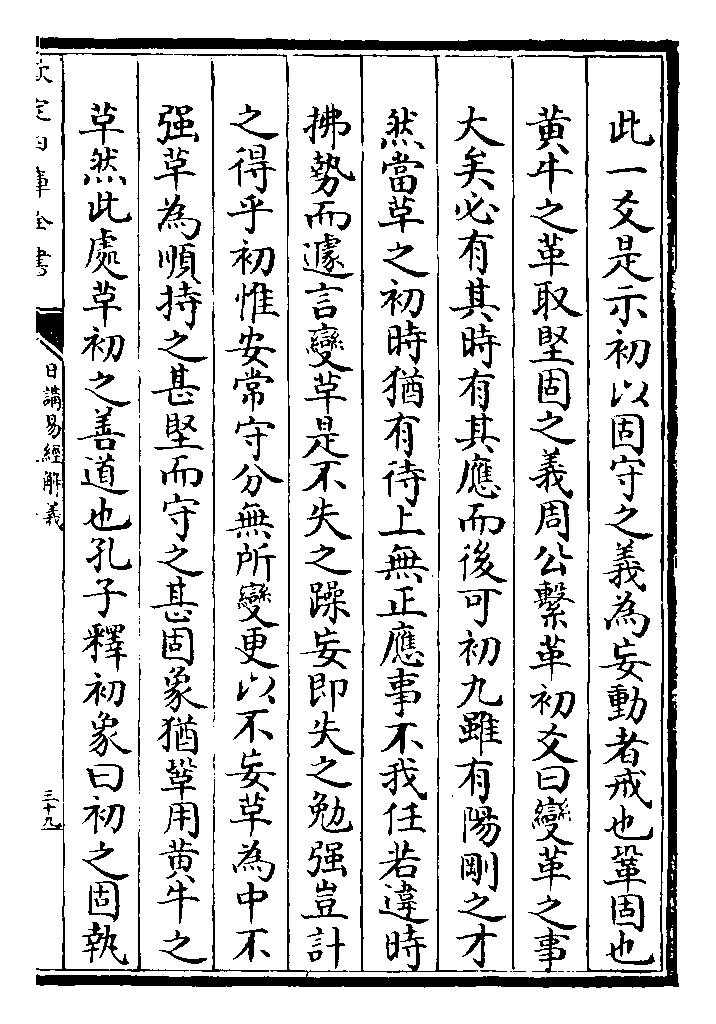 此一爻是示初以固守之義為妄動者戒也鞏固也
黄牛之革取堅固之義周公繫革初爻曰變革之事
大矣必有其時有其應而後可初九雖有陽剛之才
然當革之初時猶有待上無正應事不我任若違時
拂勢而遽言變革是不失之躁妄即失之勉强豈計
之得乎初惟安常守分無所變更以不妄革為中不
强革為順持之甚堅而守之甚固象猶鞏用黄牛之
革然此處革初之善道也孔子釋初象曰初之固執
欽定四庫全書
日講易經解義
三十九